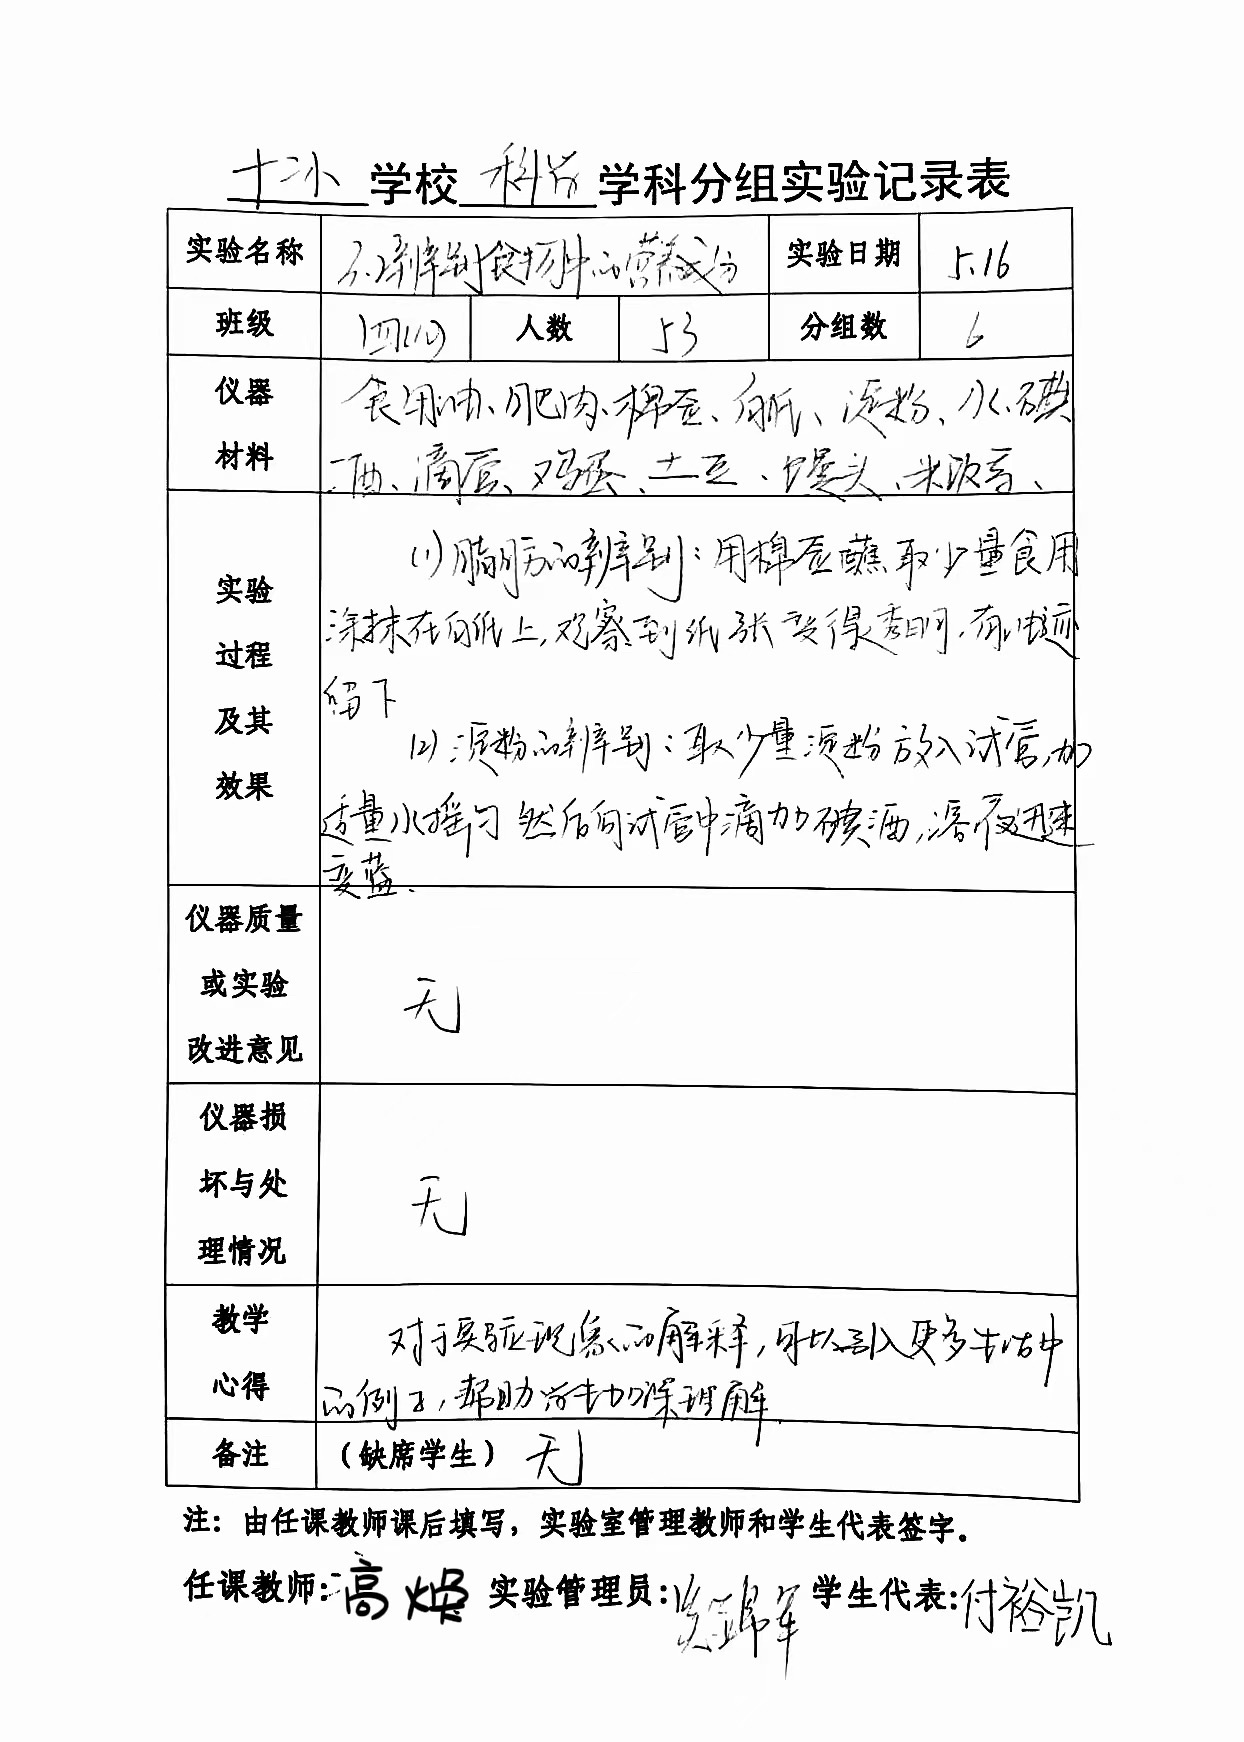 十二小学校科学学科分组实验记录表
实验名称 辨别食物中的营养成分 实验日期 5.16
班级 四(10) 人数 53 分组数 6
仪器材料 食用油、肥肉、棉签、白纸、淀粉、水、碘
酒、滴管、鸡蛋、土豆、馒头、米饭等、
实验过程及其效果
(1)脂肪的辨别:用棉签蘸取少量食用
涂抹在白纸上,观察到纸张变得透明,有油迹
留下
(2)淀粉的辨别:取少量淀粉放入试管,加
适量水摇匀 然后向试管中滴加碘酒,溶液迅速
变蓝.
仪器质量或实验改进意见 无
仪器损坏与处理情况 无
教学心得 对于实验现象的解释,可以引入更多生活中
的例子,帮助学生加深理解.
备注 (缺席学生) 无
注:由任课教师课后填写,实验室管理教师和学生代表签字。
任课教师:高焕 实验管理员: 学生代表:付裕凯